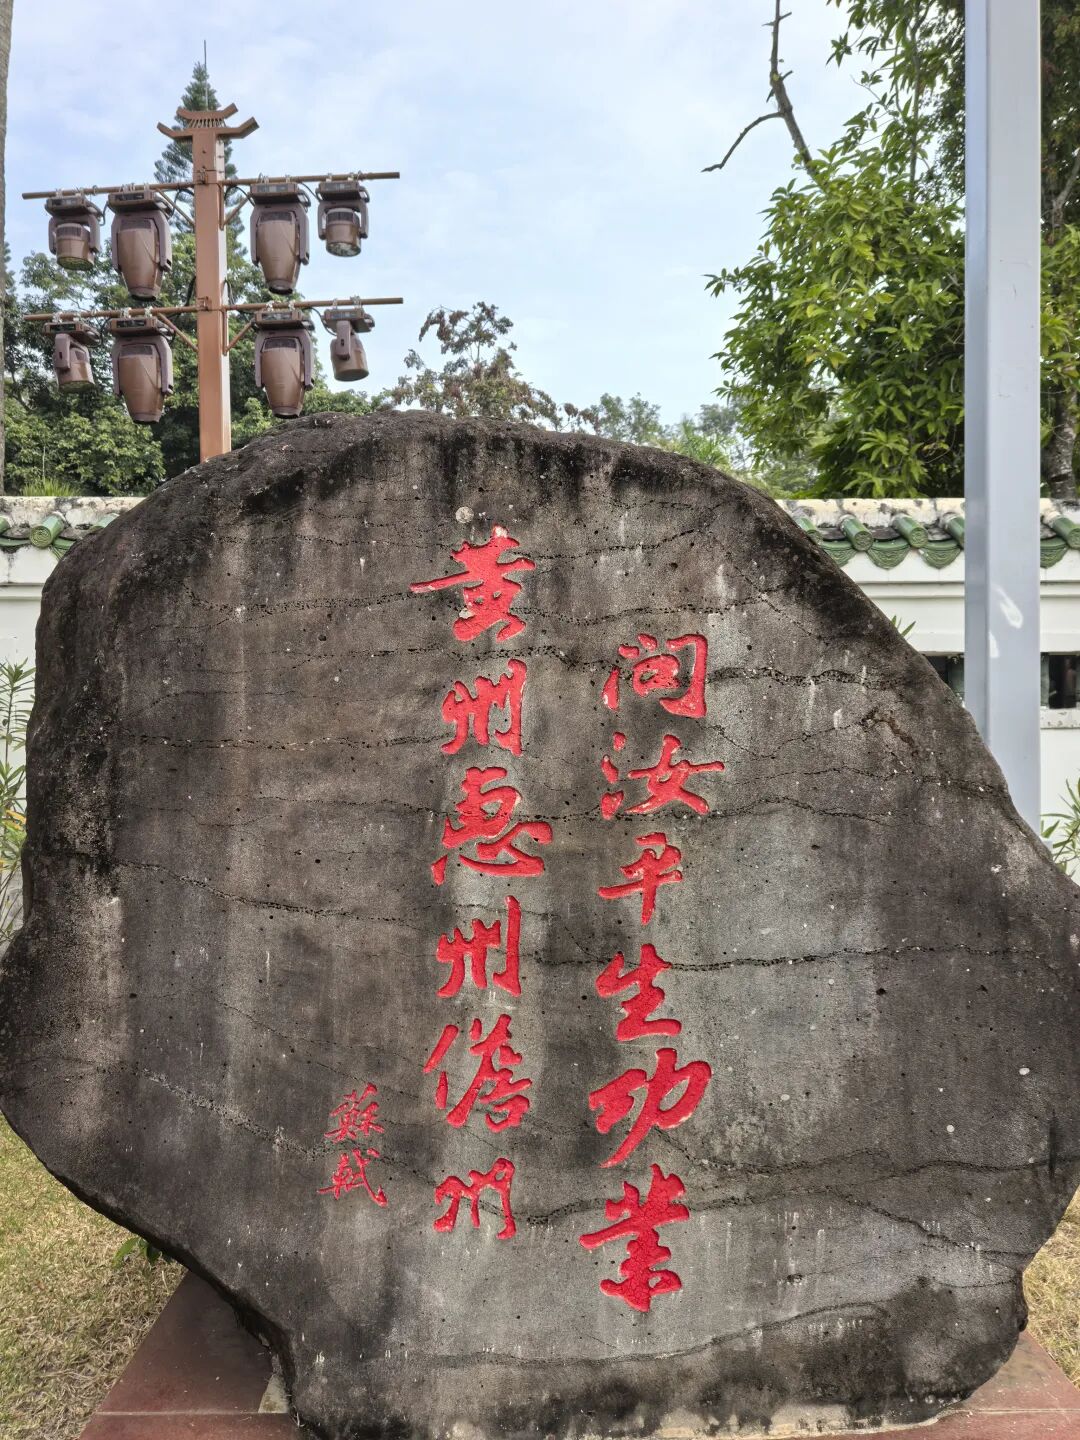 问汝平生功业
黄州惠州儋州
蘇軾